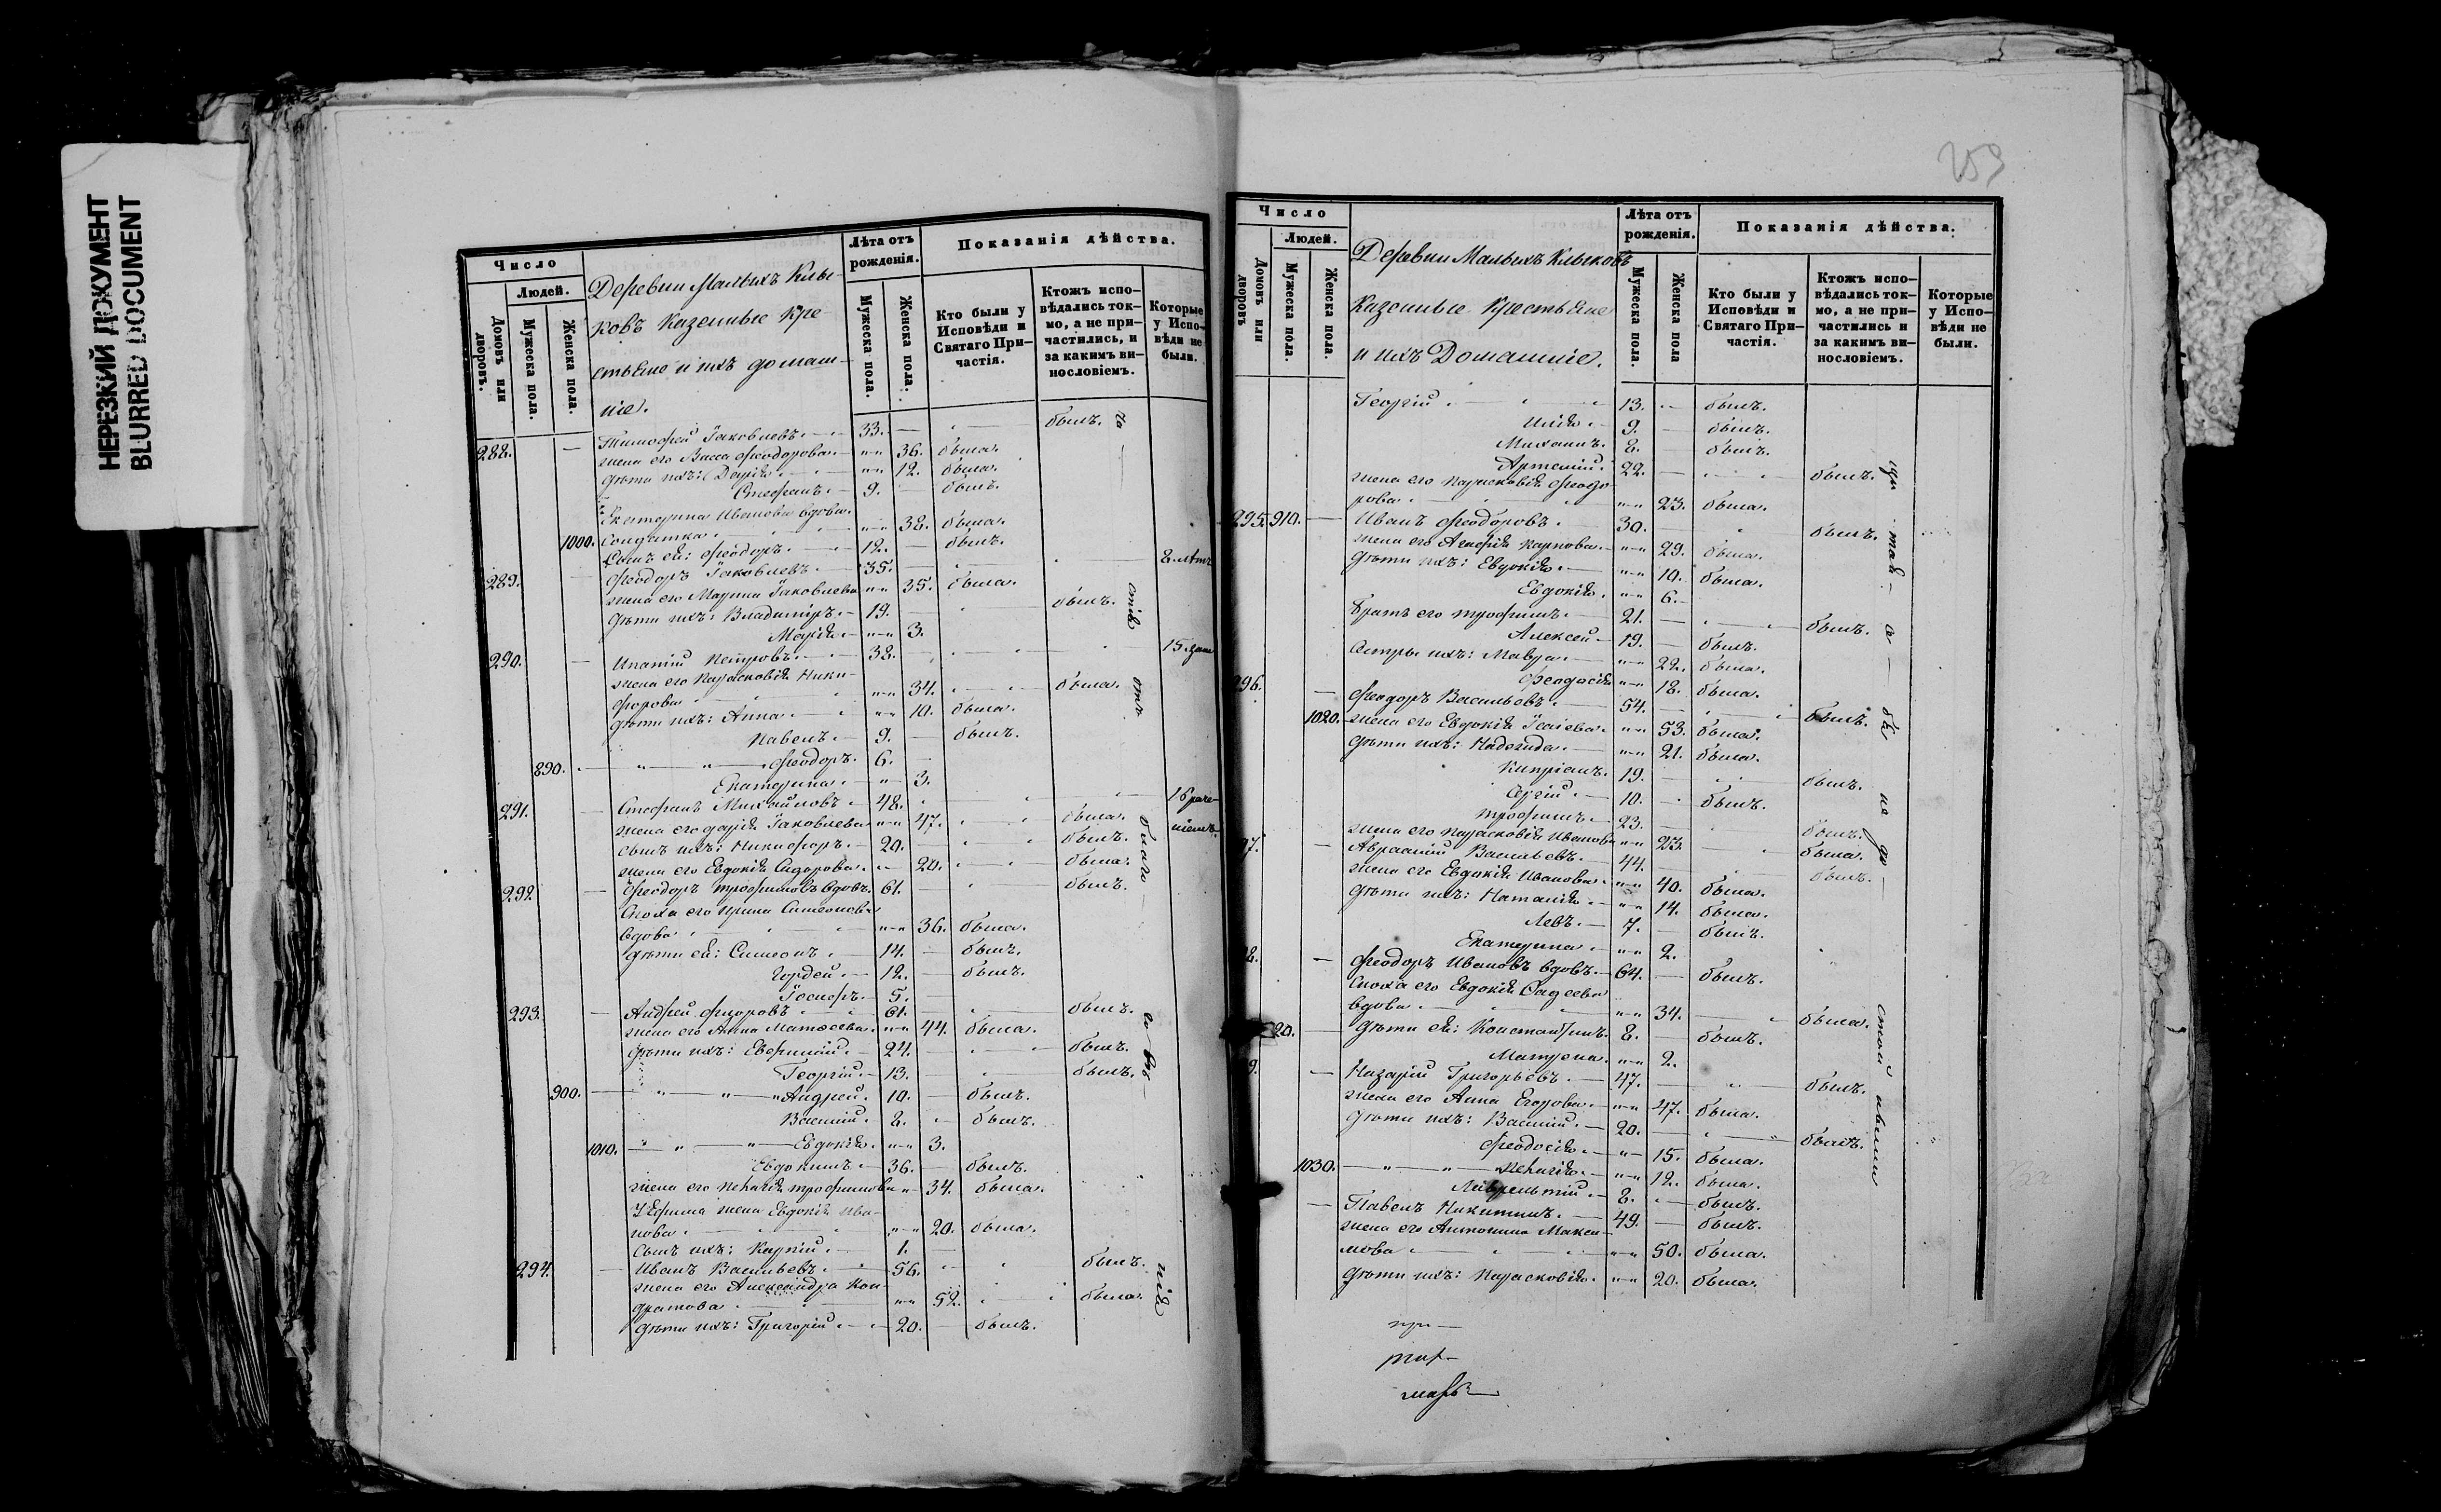 НЕРЕЗКИЙ ДОКУМЕНТ
BLURRED DOCUMENT
Число
Людей.
Домовъ или дворовъ.
Мужеска пола.
Женска пола.
Деревни Малыхъ Клы-
ковъ Казенные Кре-
стьяне и ихъ домаш-
ніе.
Лѣта отъ рожденія.
Мужеска пола.
Женска пола.
Показанія дѣйства.
Кто были у Исповѣди и Святаго При-частія.
Ктожъ испо-вѣдались ток-мо, а не при-частились, и за какимъ ви-нословіемъ.
Которые у Испо-вѣди не были.
288. — Тимофей Іаковлевъ. 33. — былъ.
жена его Васса Феодорова. 36. была.
дѣти ихъ: Дарія. 12. была.
Стефанъ. 9. — былъ.
Екатерина Иванова вдова.
1000. Солдатка. 38. была.
Сынъ ея: Феодоръ. 12. — былъ.
289. Феодоръ Іаковлевъ. 35. — 8. лѣтъ
жена его Марина Іаковлева 35. была.
дѣти ихъ: Владиміръ. 19. былъ.
Марія. 3.
290. — Ипатій Петровъ. 38.
жена его Парасковія Ники-
форова 34. была.
дѣти ихъ: Анна. 10. была.
Павелъ. 9. — былъ.
890. Феодоръ. 6. —
Екатерина. 3.
291. — Стефанъ Михайловъ. 48.
жена его Дарія Іаковлева 47. была.
сынъ ихъ: Никифоръ. 20. былъ.
жена его Евдокія Сидорова. 20. была.
292. — Феодоръ Трофимовъ вдовъ. 61. — былъ.
Сноха его Ирина Симеонова
вдова 36. была.
дѣти ея: Симеонъ. 14. — былъ.
Гордей. 12. — былъ.
Іосифъ. 5. —
293. — Андрей Феодоровъ 61. былъ.
жена его Анна Матѳеева. 44. была.
дѣти ихъ: Евфимій. 24. — былъ.
Георгій. 13. — былъ.
900. — Андрей. 10. — былъ.
Василій. 8. — былъ.
1010. — Евдокія. 3.
Евдокимъ. 36. — былъ.
жена его Пелагія Трофимова 34. была.
У Ефима жена Евдокія Ива-
нова. 20. была.
сынъ ихъ: Карпій. 1. —
294. — Иванъ Васильевъ. 56. былъ.
жена его Александра Кон-
дратова 52. была.
дѣти ихъ: Григорій. 20. — былъ.
259
Число
Людей.
Домовъ или дворовъ
Мужеска пола.
Женска пола.
Деревни Малыхъ Клыковъ
Казенные Крестьяне
и ихъ Домашніе.
Лѣта отъ рожденія.
Мужеска пола.
Женска пола
Показанія дѣйства.
Кто были у Исповѣди и Святаго При-частія.
Ктожъ испо-вѣдались ток-мо, а не при-частились и за какимъ ви-нословіемъ.
Которые у Испо-вѣди не были.
Георгій. 13. — былъ.
Илія. 9. — былъ.
Михаилъ. 8. — былъ.
Артемій. 22. — былъ.
жена его Парасковія Феодо-
рова 23. была.
295. 910. — Иванъ Феодоровъ. 30. былъ.
жена его Агафія Карпова. 29. была.
дѣти ихъ: Евдокія. 10. была.
Евдокія. 6. —
братъ его Трофимъ. 21. — былъ.
Алексей — 19. — былъ.
Сестры ихъ: Мавра. 22. была.
Феодосія 18. была.
296. — Феодоръ Васильевъ. 54. — былъ.
1020. — жена его Евдокія Ісаіева. 53. была.
дѣти ихъ: Надежда. 21. была.
Кипріанъ. 19. былъ.
Сергій. 10. — былъ.
Трофимъ. 23. — былъ.
жена его Парасковія Иванова 23. была.
97. — Авраамій Васильевъ. 44. былъ.
жена его Евдокія Иванова. 40. была.
дѣти ихъ: Наталія. 14. была.
Левъ. 7. — былъ.
Екатерина. 2.
8. — Феодоръ Ивановъ вдовъ. 64. — былъ.
Сноха его Евдокія Фадеева
вдова. 34. была.
20. — дѣти ея: Константинъ. 8. — былъ.
Матрена. 2.
9. — Назарій Григорьевъ. 47. — былъ.
жена его Анна Егорова. 47. была.
дѣти ихъ: Василій. 20. былъ.
Феодосія. 15. была.
1030. — Пелагія. 12. была.
Лаврентій. 8. — былъ.
— Павелъ Никитинъ. 49. — былъ.
жена его Антонина Макси-
мова 50. была.
дѣти ихъ: Парасковія. 20. была.